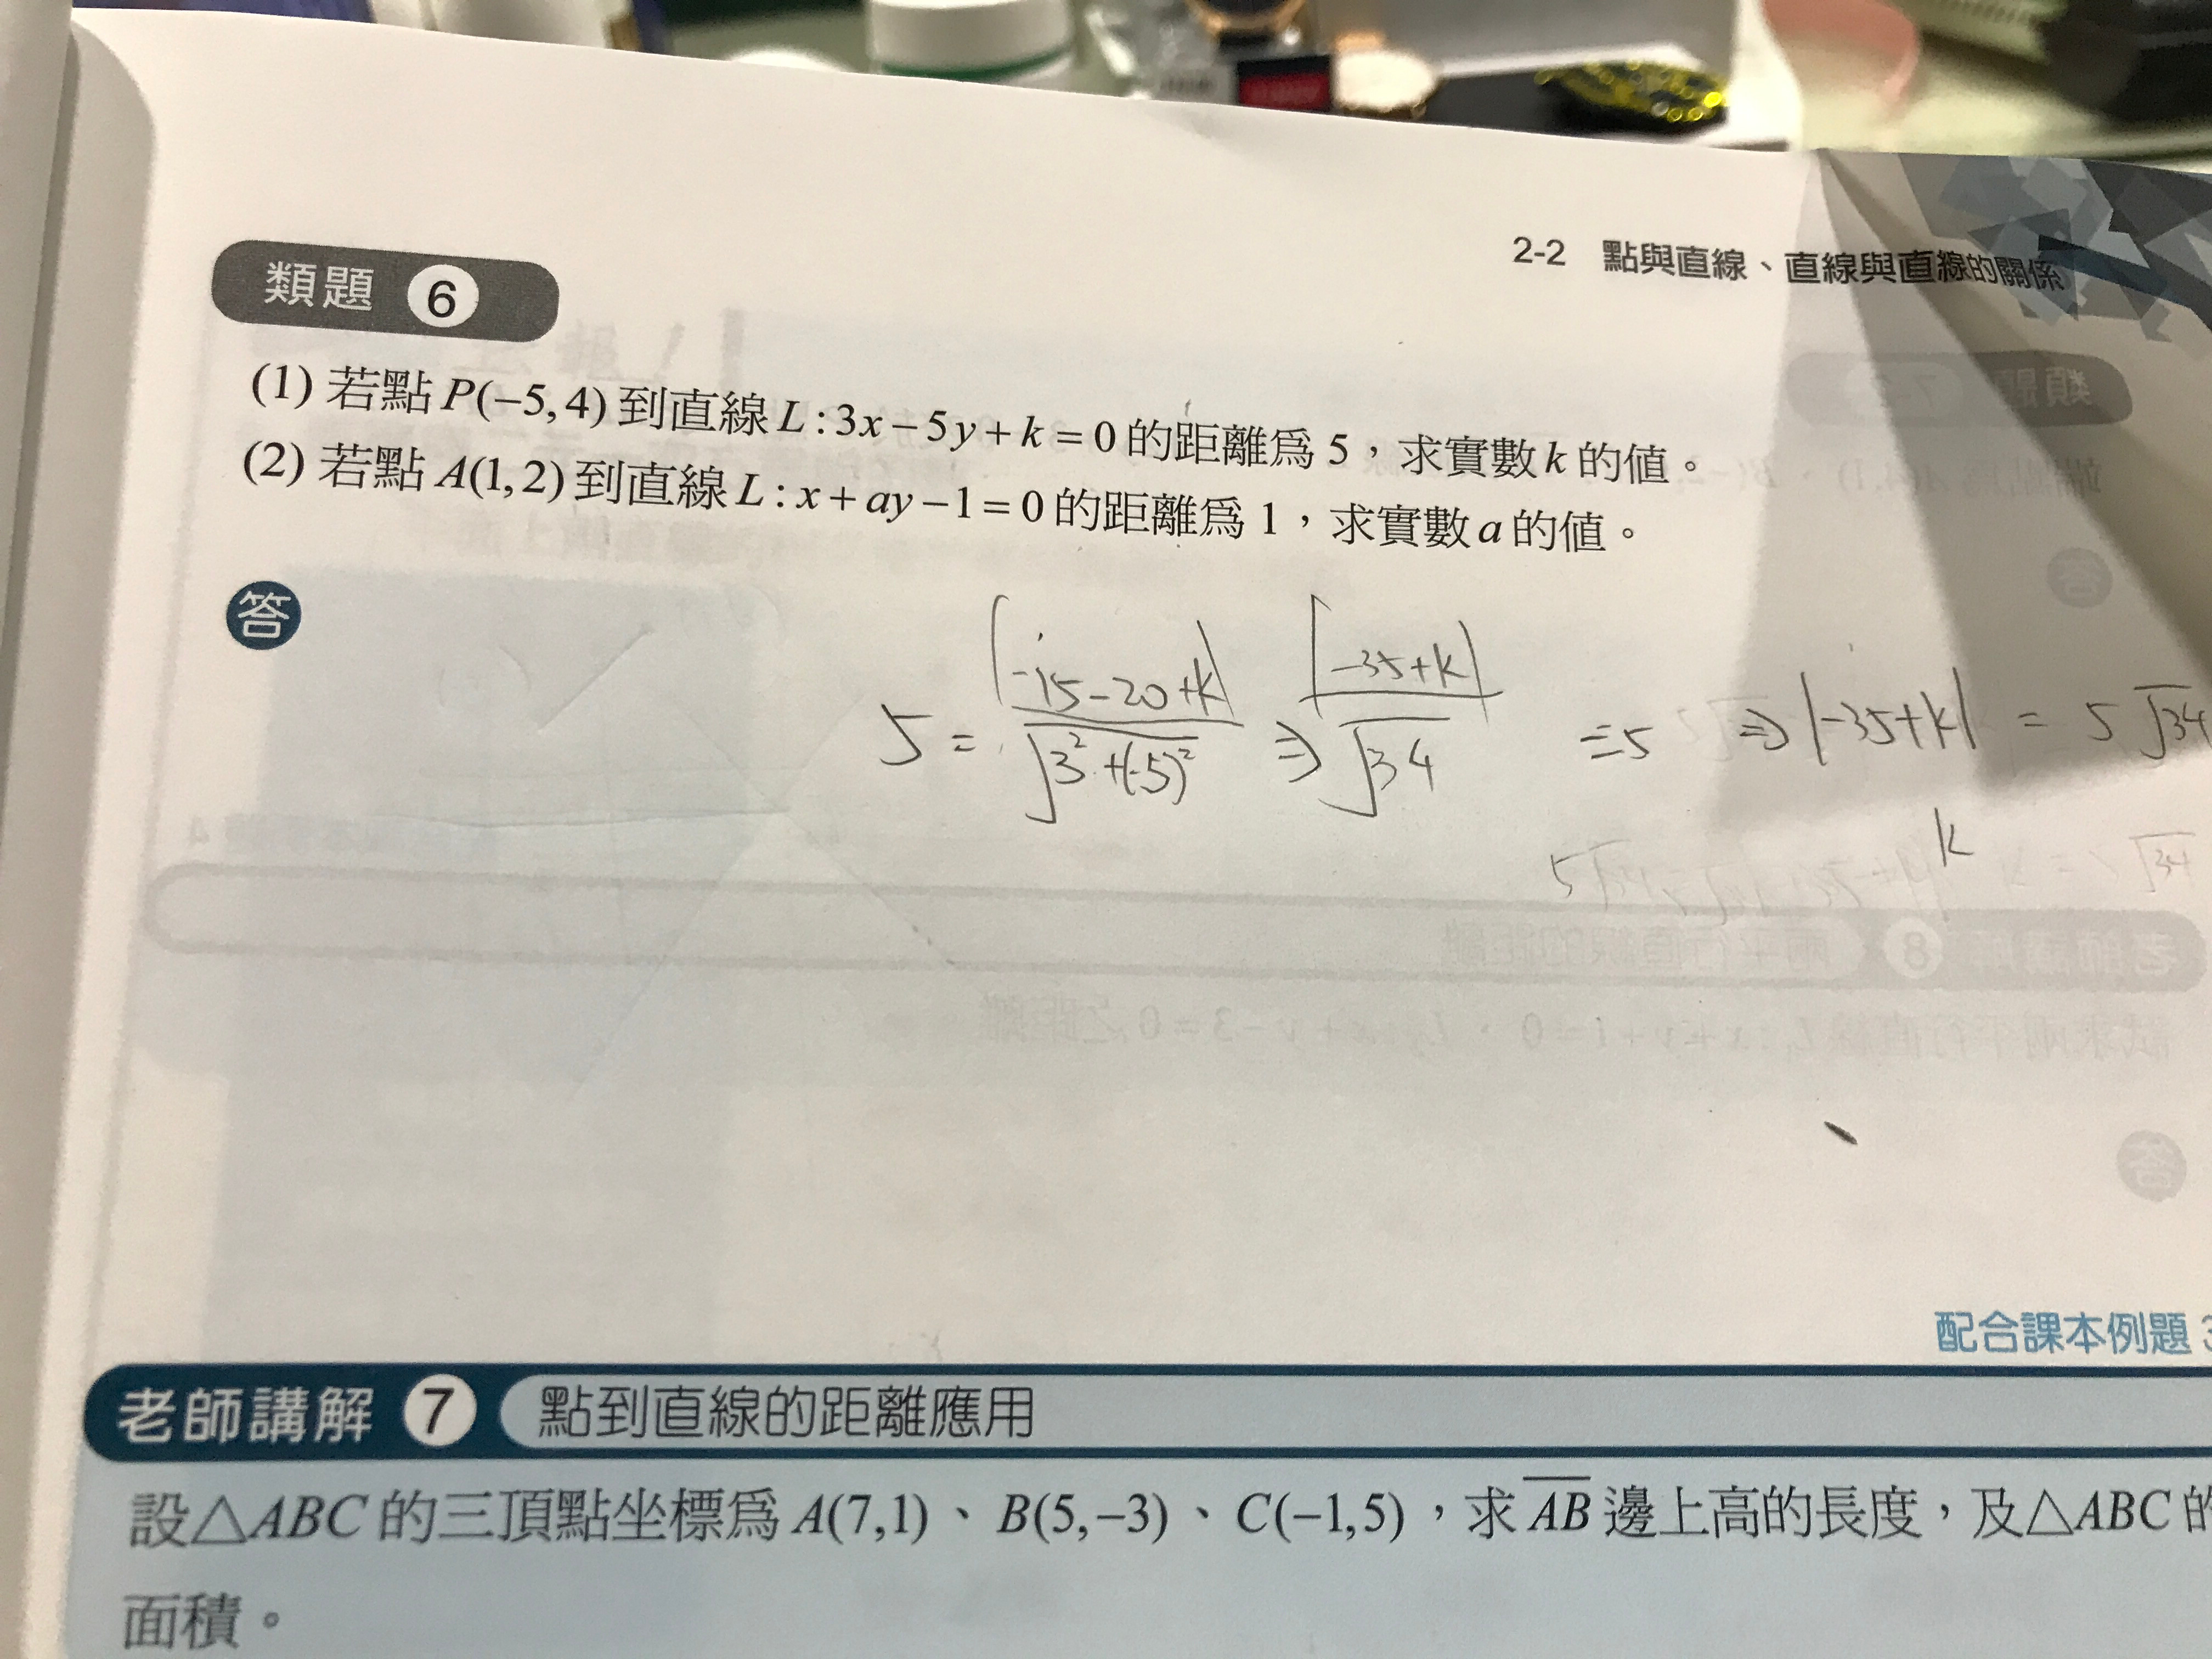 2-2 點與直線、直線與直線的關係
類題 6
(1) 若點 P(−5,4) 到直線 L:3x−5y+k=0 的距離爲 5，求實數 k 的値。
(2) 若點 A(1,2) 到直線 L:x+ay−1=0 的距離爲 1，求實數 a 的値。
答
5 = |-15-20+k| / √(3²+(-5)²) ⇒ |-35+k| / √34 = 5 ⇒ |-35+k| = 5√34
k
配合課本例題 3
老師講解 7 點到直線的距離應用
設△ABC 的三頂點坐標爲 A(7,1)、B(5,−3)、C(−1,5)，求 A̅B̅ 邊上高的長度，及△ABC 的
面積。